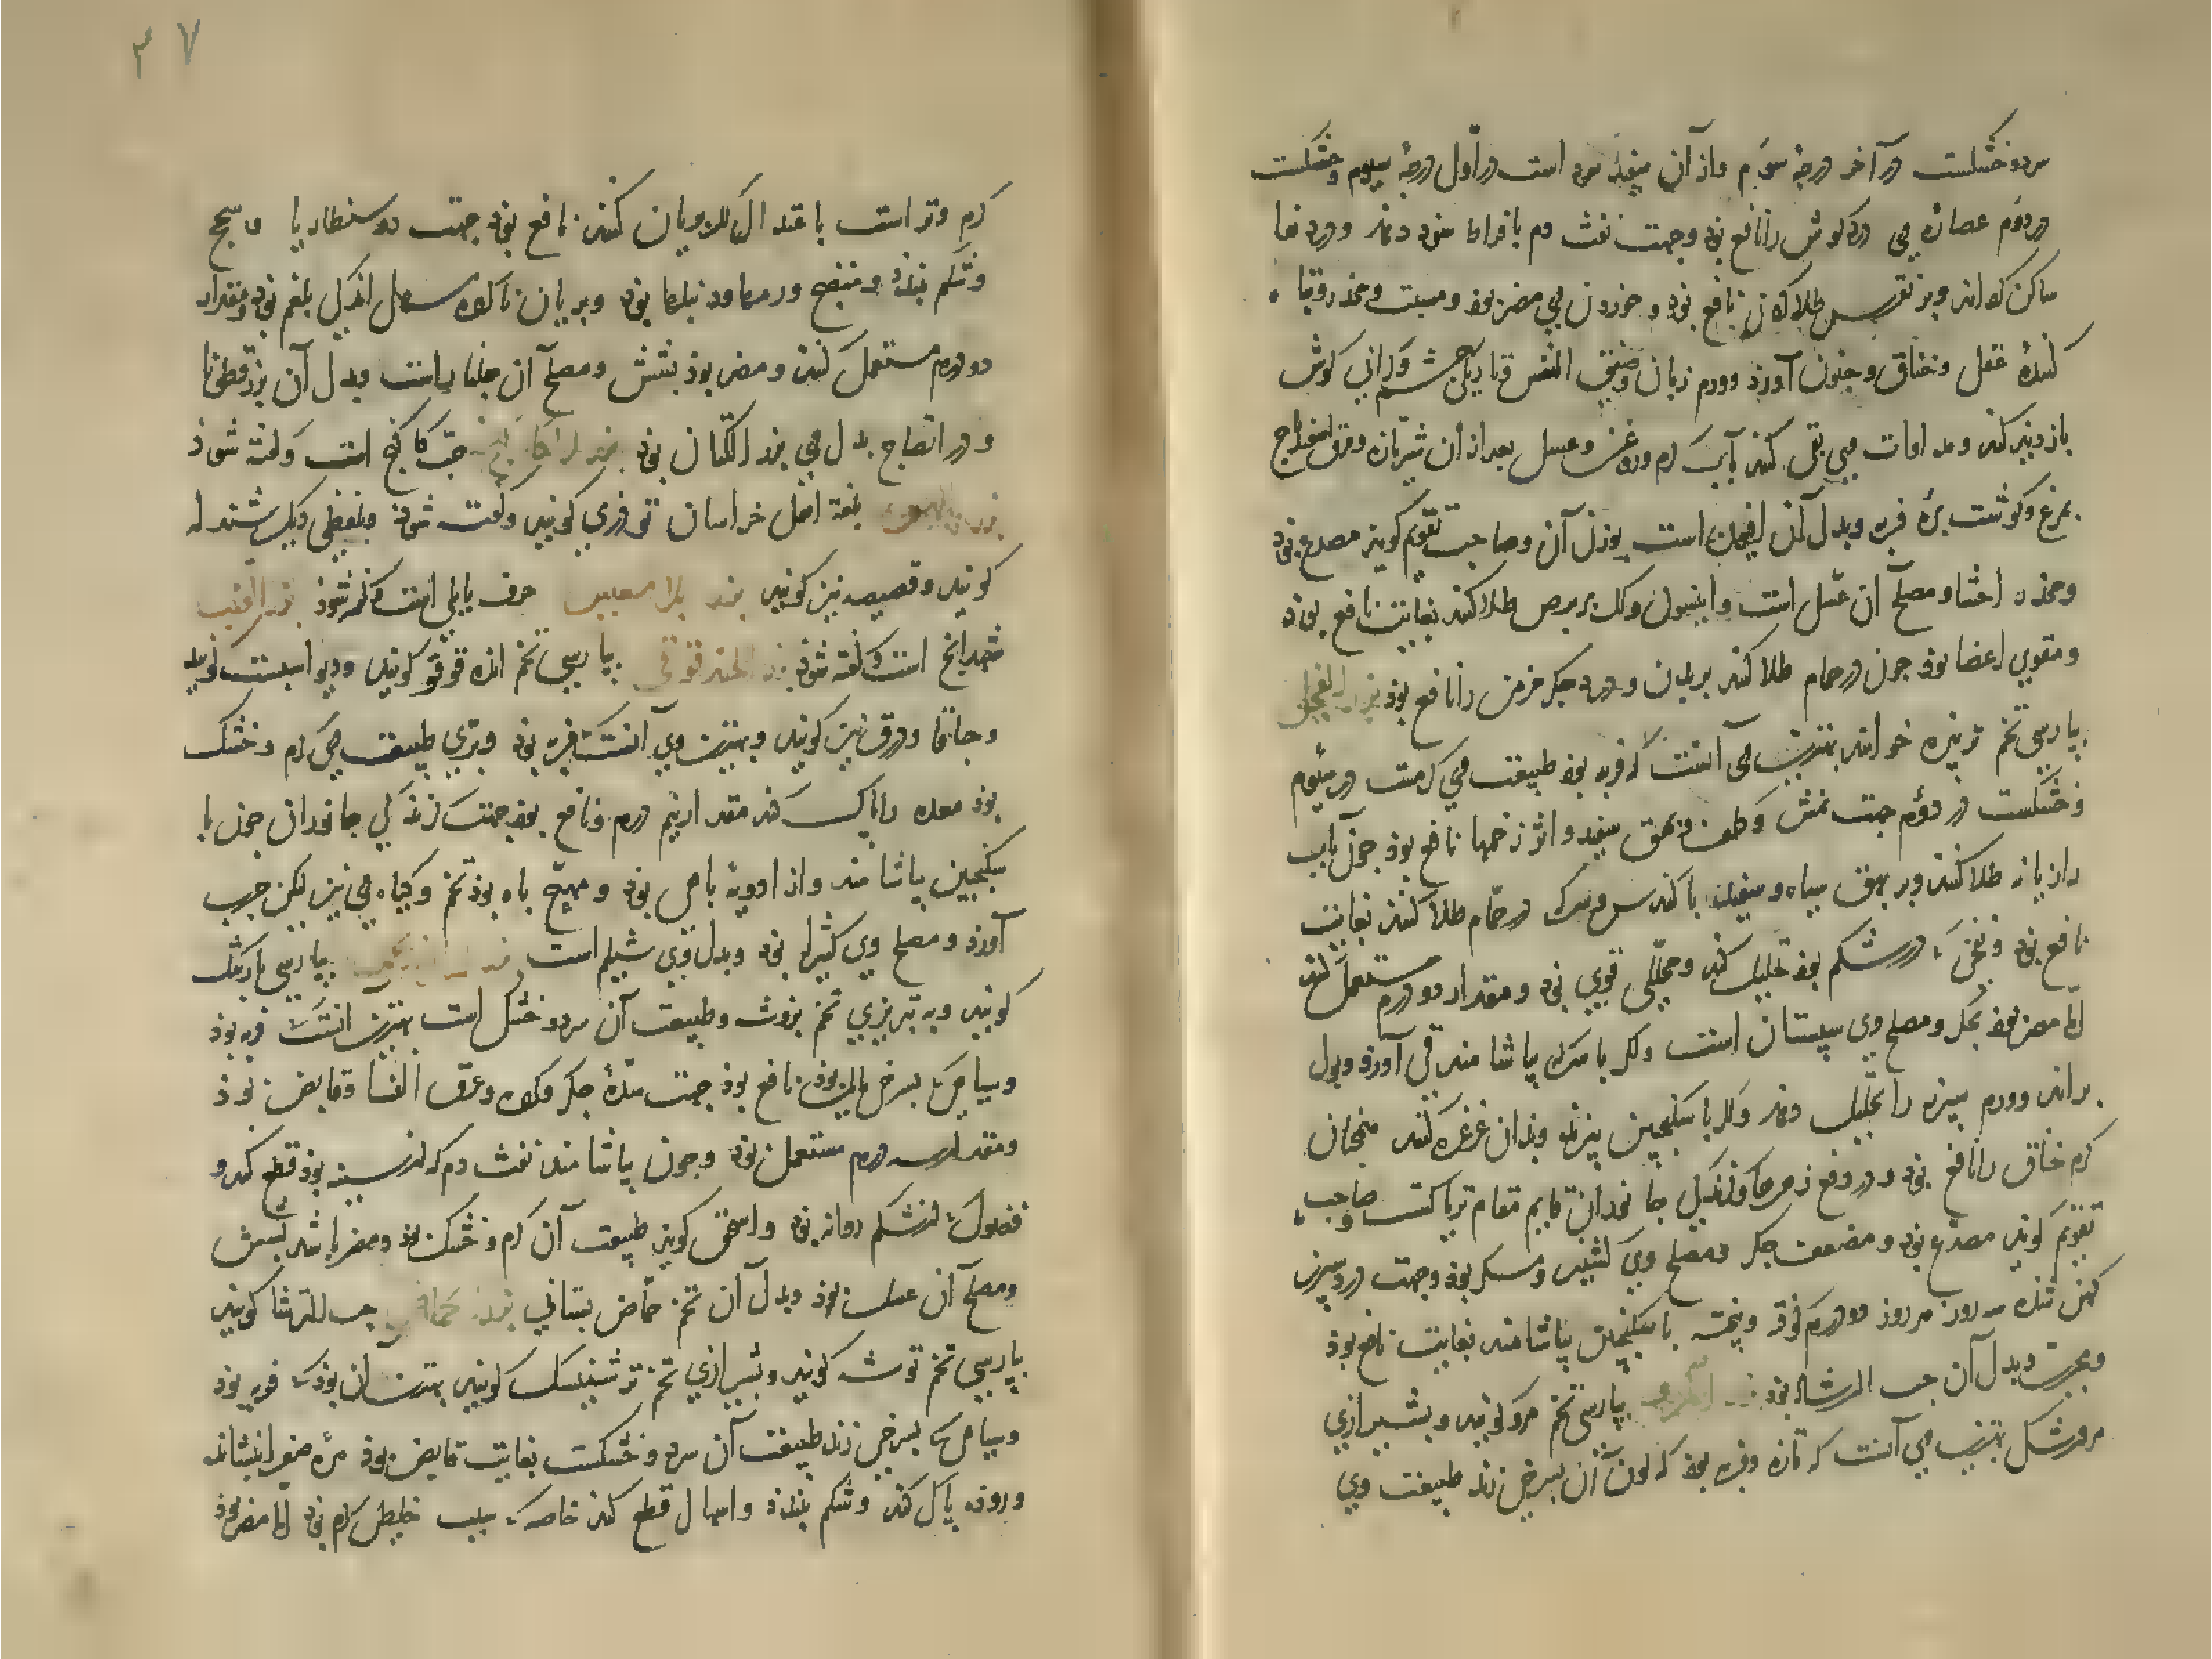 سرد و خشکست در آخر درجهٔ سوّم و از آن سفید سرد است در اول درجهٔ سیوم و خشکست
در دوّم عصارهٔ وی درد گوش را نافع بود و جهت نفث دم با فراط سود دهد و دردها
ساکن کرداند و بر نقرس طلا کردن نافع بود و خوردن وی مضر بود و مسبت و مخدر
کنندهٔ عقل و خناق و جنون آورد و ورم زبان و ضیق النفس و تاریکی چشم و گرانی کوش
باز دید کند و مداوات وی بقی کنند بآب کرم و روغن و عسل بعد از آن شیر تازه و مرق اسفیداج
بمرغ و کوشت برهٔ فربه و بدل آن افیون است بوزن آن و صاحب تقویم کوید مصدع بود
و مخدر احشا و مصلح آن عسل است و بر برص طلا کنند بغایت نافع بود
و مقوی اعضا بود چون در حمام طلا کنند بر بدن و درد جکر مزمن را نافع بود بزر الفجل
بپارسی تخم تربزه خوانند بهترین وی آنست که فربه بود طبیعت وی کرمست در سیوم
و خشکست در دوّم جهت نمش و کلف و بهق سفید و اثر زخمها نافع بود چون بآب
رازیانه طلا کنند و بر بهق سیاه و سفید با کندس و سرک در حمّام طلا کنند بغایت
نافع بود و نفخی که در شکم بود تحلیل کند و محللی قوی بود و مقدار دو درم مستعمل کنند
امّا مضر بود بجکر و مصلح وی سپستان است و اکر با سرکه بیاشامند قی آورد و بول
براند و ورم سپرز را تحلیل دهد و اکر با سکنجبین بپزند و بدان غرغره کنند همچنان
کرم خناق را نافع بود و در دفع زهرها و کزندگی جانوران قایم مقام تریاکست صاحب
تقویم کوید مصدع بود و مضعف جکر و مصلح وی کشنیز و سکر بود و جهت درد سپرز
کهن شده سه روز هر روز دو درم کوفته و پخته با سکنجبین بیاشامند بغایت نافع بود
و مجربست و بدل آن حب الرشاد بود بپارسی تخم مرو کویند و بشیرازی
مرورشک بهترین وی آنست که تازه و فربه بود که لون آن بسرخی زند طبیعت وی
۳۷
کرم و تر است باعتدال اکر بریان کنند نافع بود جهت دوسنطاریا و سحج
و شکم ببندد و منضج ورمها و دنبلها بود و بریان ناکرده مسهل اندکی بلغم بود و مقدار
دو درم مستعمل کنند و مضر بود بشش و مصلح آن جلنار است و بدل آن بزرقطونا
و در انضاج بدل وی بزر الکتان بود حب کاکنج است و کفته شود
بلغة اهل خراسان تودری کویند و کفت شود و بلفظی دیکر شندله
کویند و قصیصه نیز کویند حرف بابلی است و کفته شود بزر القنب
شهدانج است و کفته شود بزر الحندقوقی بپارسی تخم انده قوقو کویند و دیو اسبست کویند
و جاتقا و درق نیز کویند و بهترین وی آنست که فربه بود و بری طبیعت وی کرم و خشک
بود معده را پاک کند مقدار نیم درم و نافع بود جهت کزندگی جانوران چون با
سکنجبین بیاشامند و از ادویهٔ باهی بود و مهیّج باه بود تخم و کیاه وی نیز لیکن جرب
آورد و مصلح وی کثیرا بود و بدل وی شیلم است بپارسی بارتنک
کویند و به تبریزی تخم بزوشه و طبیعت آن سرد و خشک است بهترین آنست که فربه بود
و سیاهی که بسرخی مایل بود نافع بود جهت سدّهٔ جکر و کرده و عرق النسا و قابض بود
و مقدار سه درم مستعمل بود و چون بیاشامند نفث دم که از سینه بود قطع کند و
فضول که از شکم روانه بود و اسحق کوید طبیعت آن کرم و خشک بود و مضر باشد بشش
و مصلح آن عسل بود و بدل آن تخم حماض بستانی بزر حماض حب کویند
بپارسی تخم توشه کویند و بشیرازی تخم ترشینک کویند بهترین آن بود که فربه بود
و سیاهی که بسرخی زند طبیعت آن سرد و خشکست بغایت قابض بود مرّهٔ صفرا بنشاند
و روده پاک کند و شکم ببندد و اسهال قطع کند خاصه که بسبب خلطی کرم بود امّا مضر بود